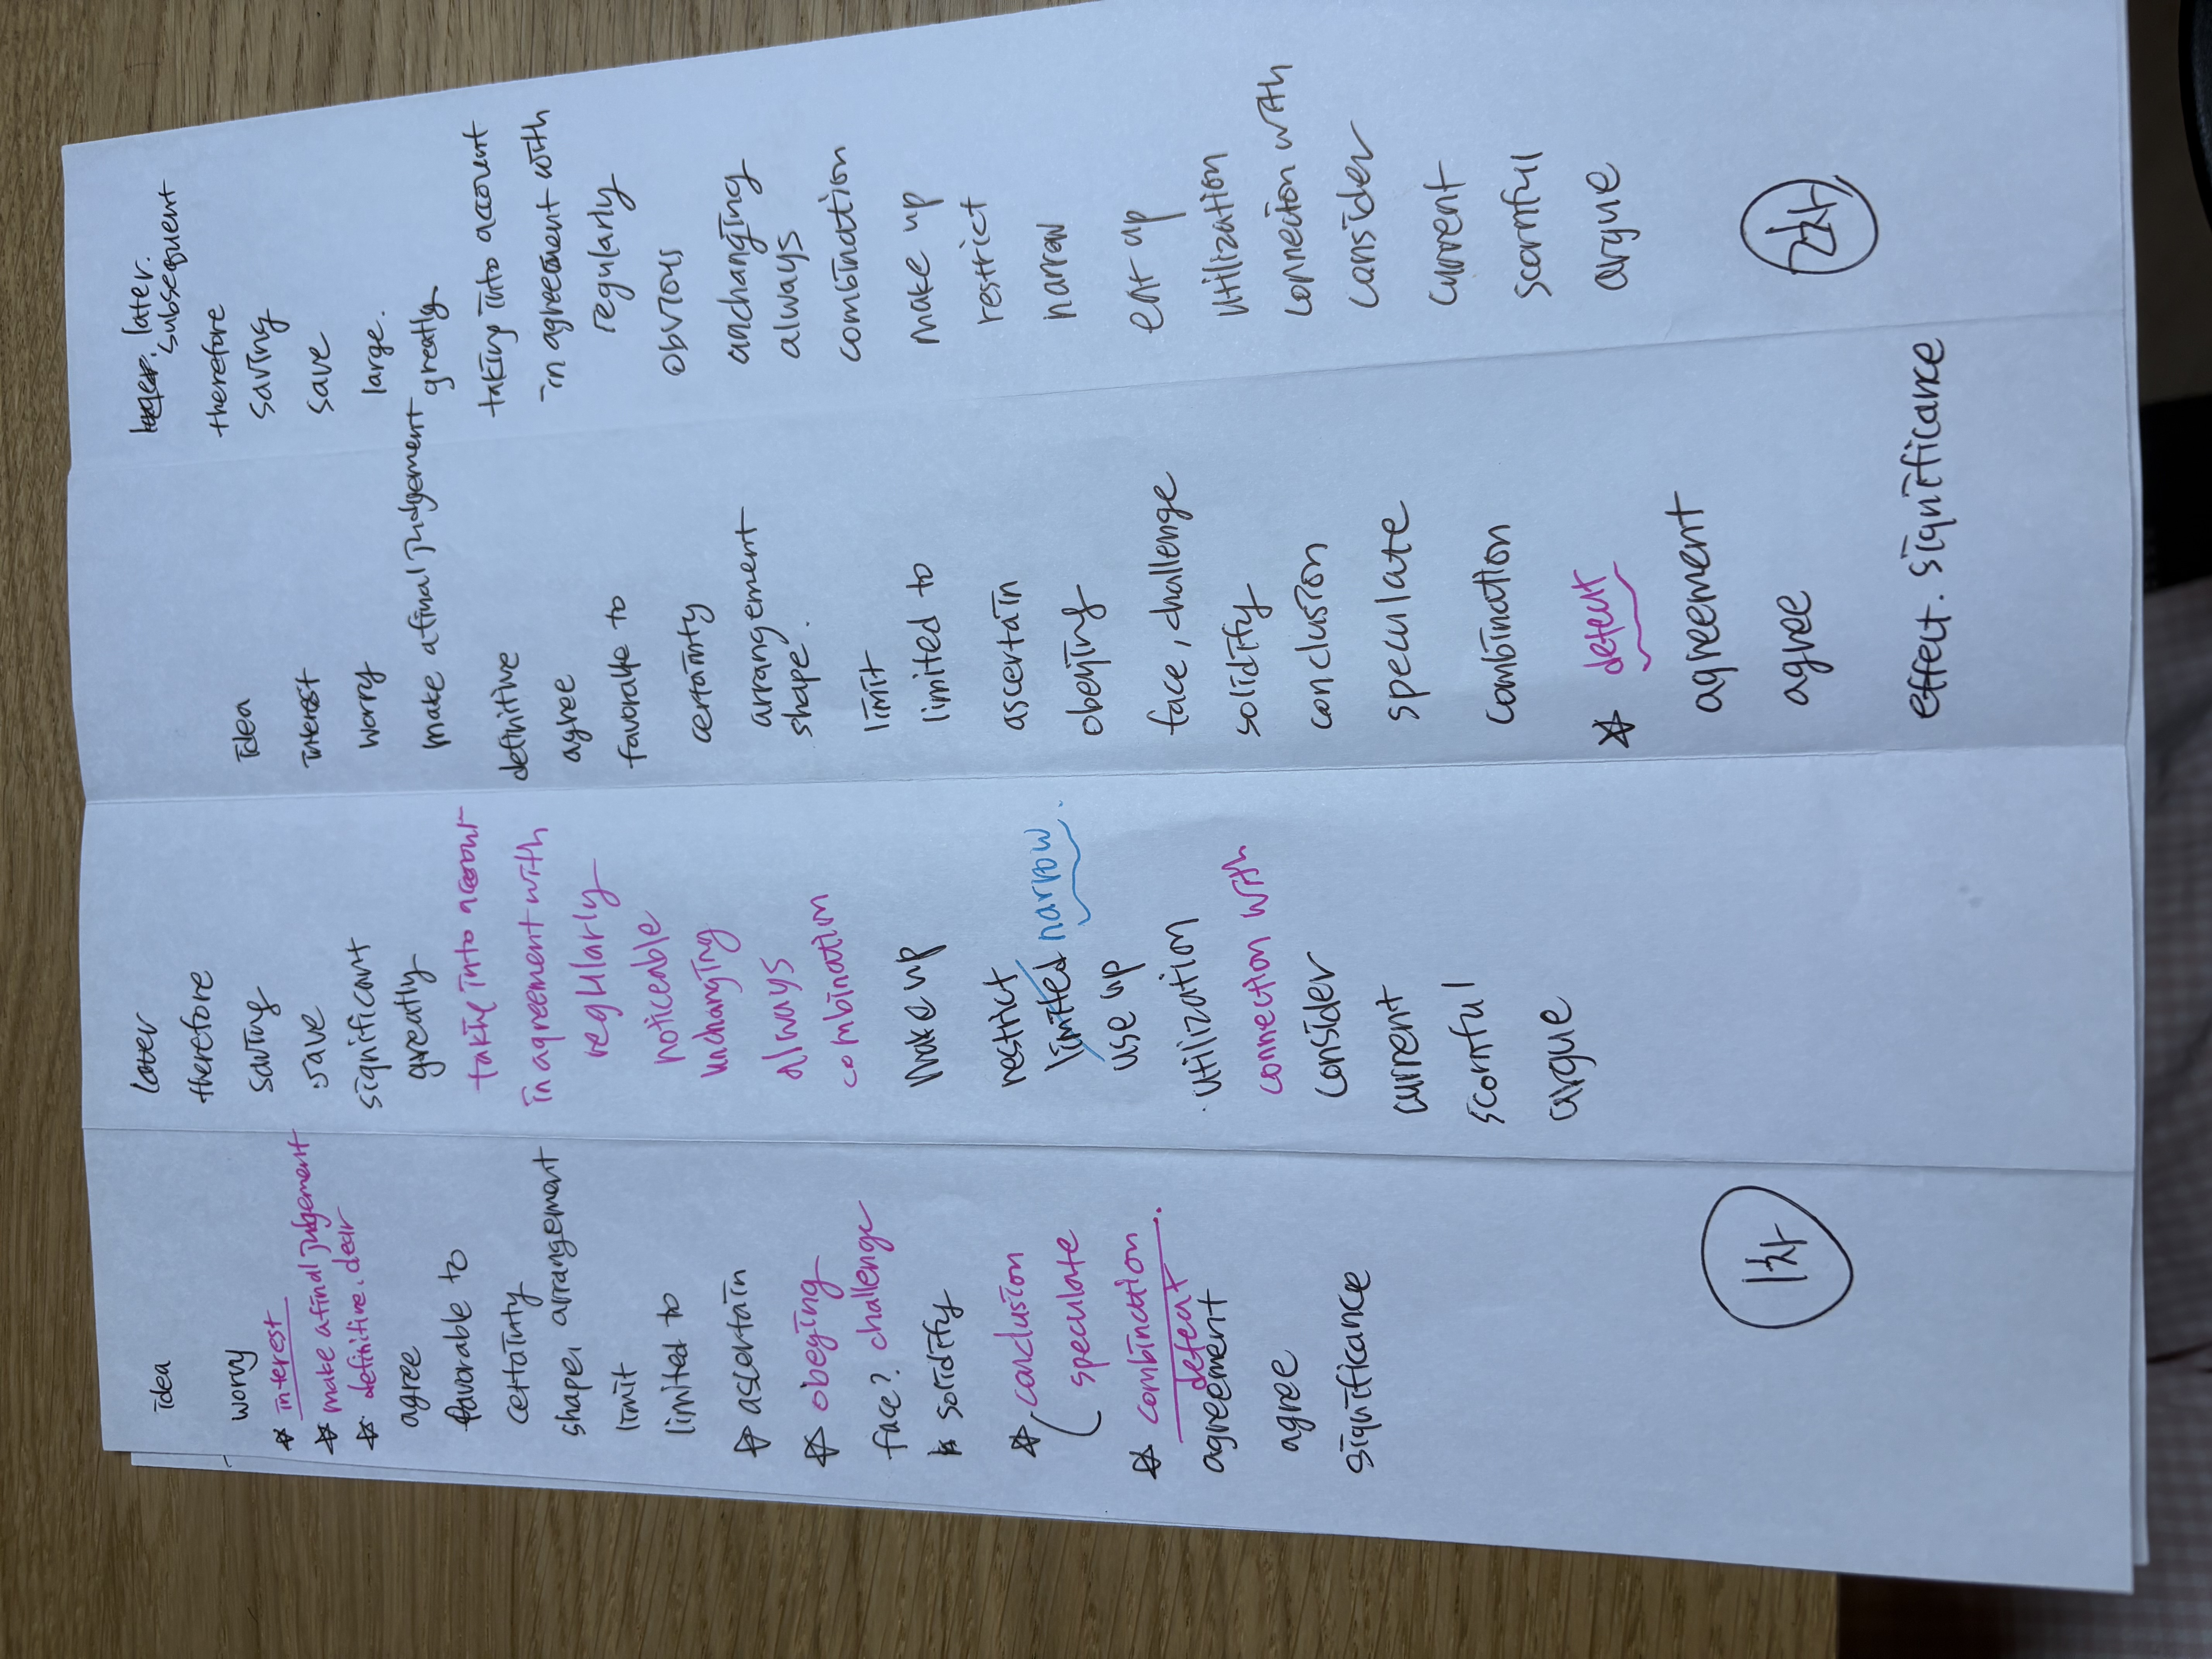 idea
worry
☆ interest
☆ make a final judgement
☆ definitive. decir
agree
favorable to
certainty
shape, arrangement
limit
limited to
☆ ascertain
☆ obeying
face? challenge
☆ solidify
☆ conclusion
speculate
☆ combination
defeat
agreement
agree
significance
1차
later
therefore
saving
save
significant
greatly
taking into account
in agreement with
regularly
noticeable
unchanging
always
combination
make up
restrict
limited narrow
use up
utilization
connection with
consider
current
scornful
argue
idea
interest
worry
make a final judgement
definitive
agree
favorable to
certainty
arrangement
shape.
limit
limited to
ascertain
obeying
face, challenge
solidify
conclusion
speculate
combination
☆ defeat
agreement
agree
effect. significance
later.
subsequent
therefore
saving
save
large.
greatly
taking into account
in agreement with
regularly
obvious
unchanging
always
combination
make up
restrict
narrow
eat up
utilization
connection with
consider
current
scornful
argue
2차